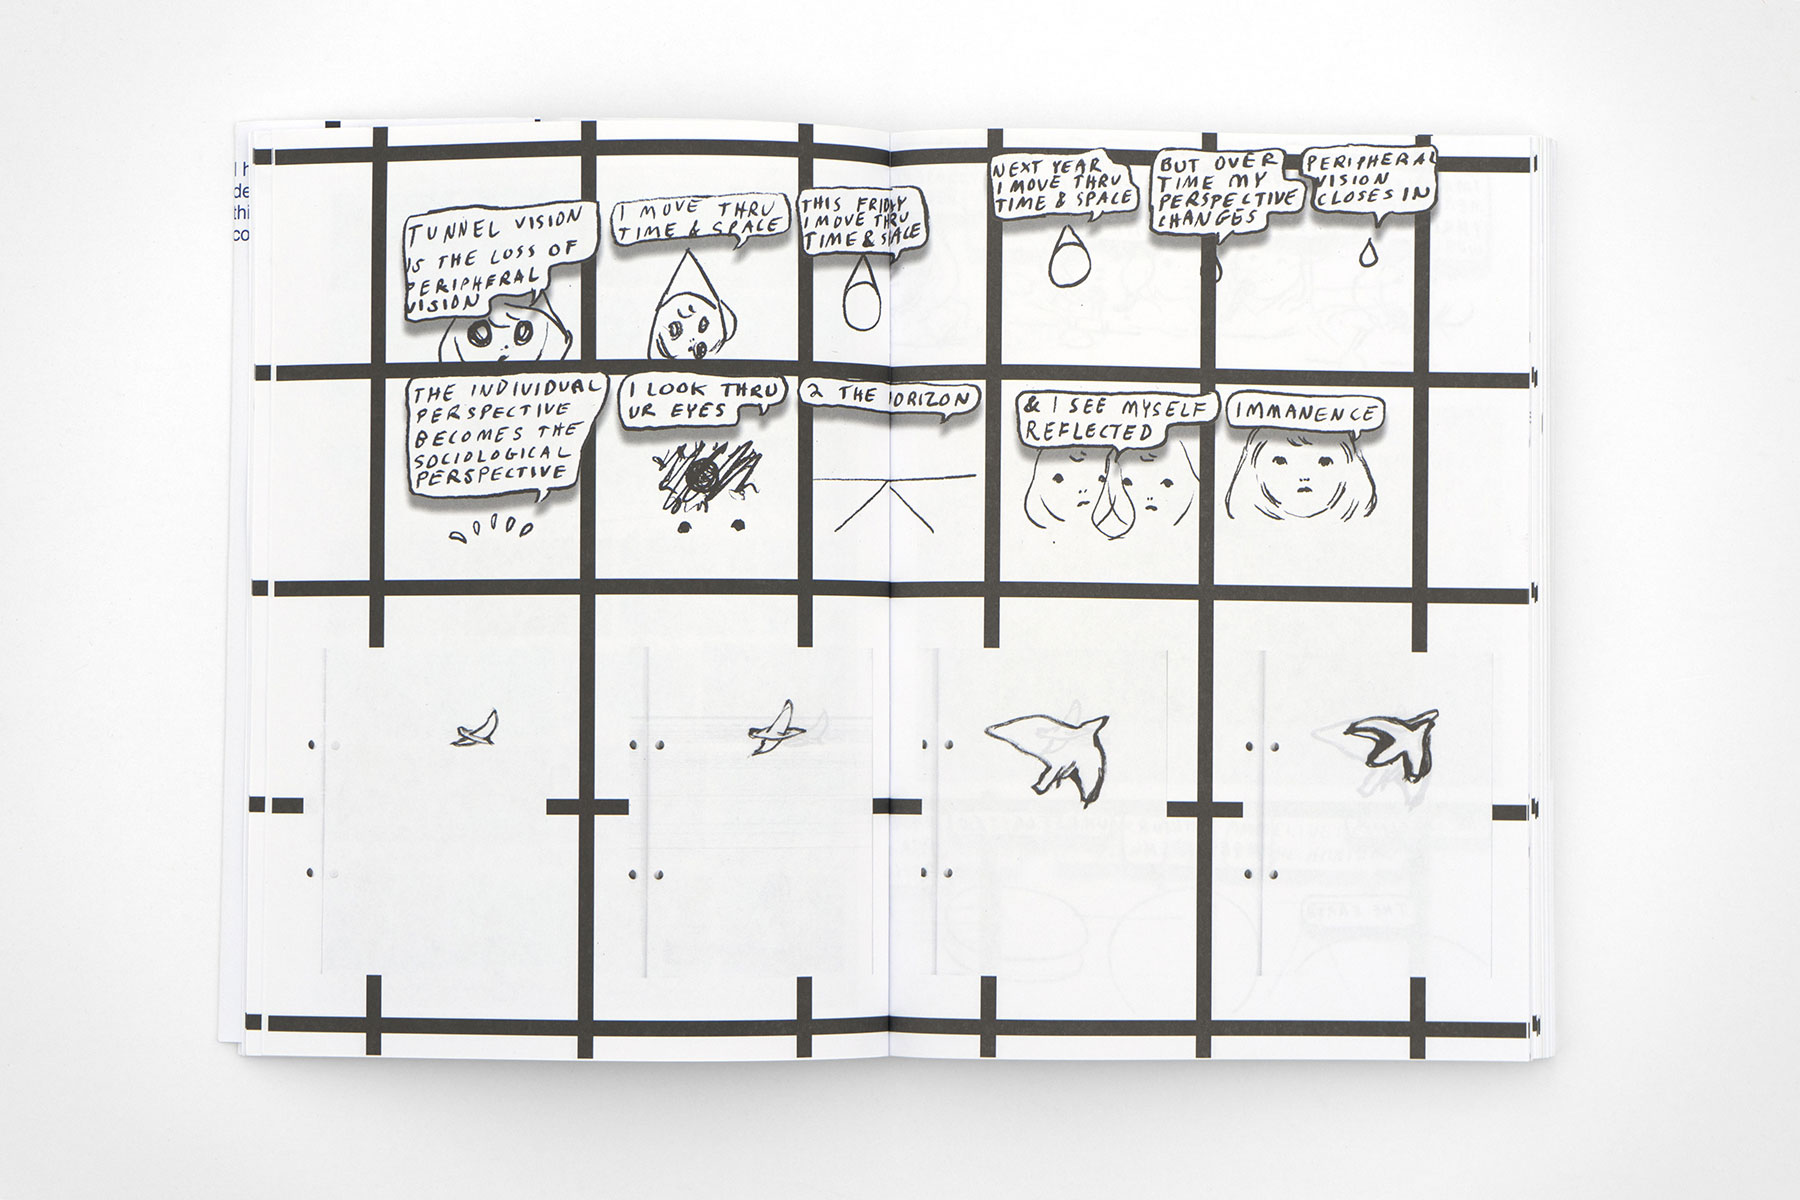 TUNNEL VISION
IS THE LOSS OF
PERIPHERAL
VISION
I MOVE THRU
TIME & SPACE
THIS FRIDAY
I MOVE THRU
TIME & SPACE
NEXT YEAR
I MOVE THRU
TIME & SPACE
BUT OVER
TIME MY
PERSPECTIVE
CHANGES
PERIPHERAL
VISION
CLOSES IN
THE INDIVIDUAL
PERSPECTIVE
BECOMES THE
SOCIOLOGICAL
PERSPECTIVE
I LOOK THRU
UR EYES
2 THE HORIZON
& I SEE MYSELF
REFLECTED
IMMANENCE
I h
de
thi
co